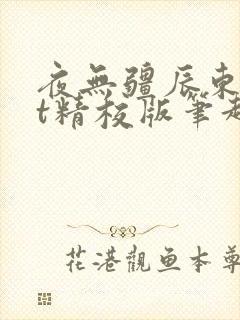 夜無疆辰東
t精校版筆趣
花港觀鱼本尊